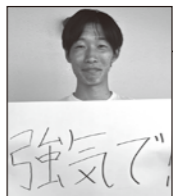 強気で!